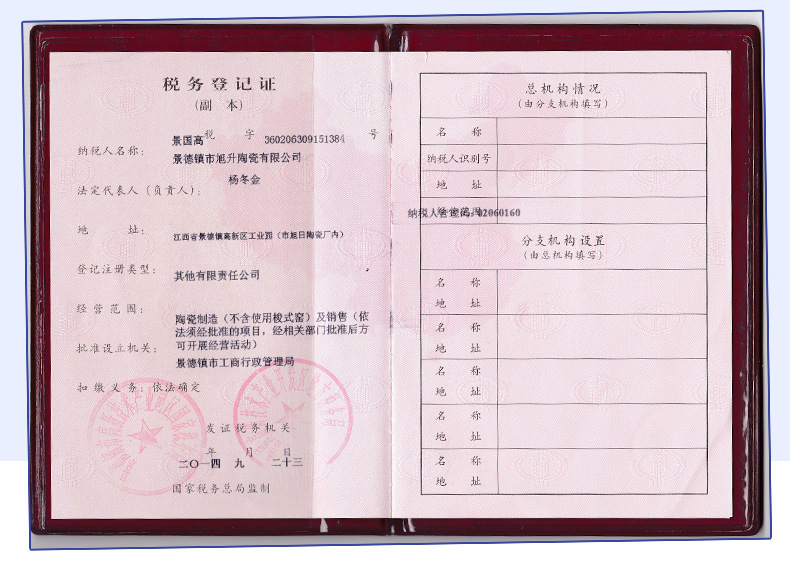 税务登记证
(副 本)
景国高 税 字 360206309151384 号
纳税人名称: 景德镇市旭升陶瓷有限公司
法定代表人(负责人): 杨冬金
地 址: 江西省景德镇高新区工业园(市旭日陶瓷厂内)
登记注册类型: 其他有限责任公司
经营范围: 陶瓷制造(不含使用梭式窑)及销售(依
法须经批准的项目,经相关部门批准后方
可开展经营活动)
批准设立机关: 景德镇市工商行政管理局
扣缴义务: 依法确定
发证税务机关
年 月 日
二〇一四 九 二十三
国家税务总局监制
总机构情况
(由分支机构填写)
名 称
纳税人识别号
地 址
经营范围
纳税人管理码: 02060160
分支机构设置
(由总机构填写)
名 称
地 址
名 称
地 址
名 称
地 址
名 称
地 址
名 称
地 址